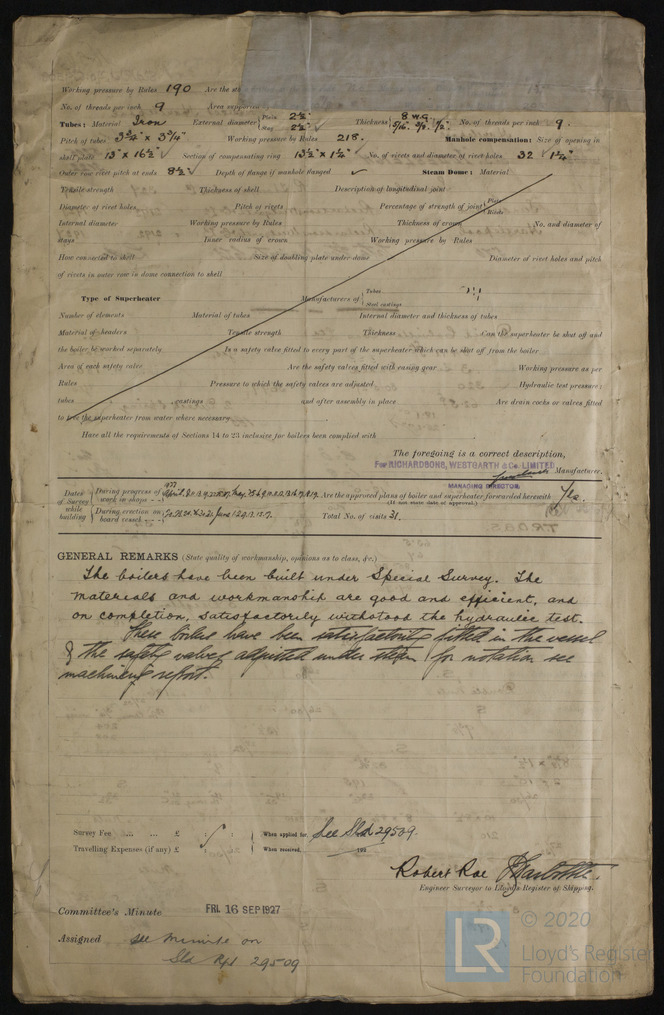 Working pressure by Rules 190 Are the
No. of threads per inch 9 Area supported
Tubes: Material Iron External diameter Plain 2½" Stay 2½" ✓ Thickness 8 W.G. 5/16" 3/8" ½" No. of threads per inch 9.
Pitch of tubes 3¾" x 3¾" Working pressure by Rules 218. Manhole compensation: Size of opening in
shell plate 13" x 16½" ✓ Section of compensating ring 13½" x 1¼" ✓ No. of rivets and diameter of rivet holes 32 ✓ 1¼"
Outer row rivet pitch at ends 8½" ✓ Depth of flange if manhole flanged ✓ Steam Dome: Material
Tensile strength Thickness of shell Description of longitudinal joint
Diameter of rivet holes Pitch of rivets Percentage of strength of joint Plate Rivets
Internal diameter Working pressure by Rules Thickness of crown No. and diameter of
stays Inner radius of crown Working pressure by Rules
How connected to shell Size of doubling plate under dome Diameter of rivet holes and pitch
of rivets in outer row in dome connection to shell
Type of Superheater Manufacturers of Tubes Steel castings
Number of elements Material of tubes Internal diameter and thickness of tubes
Material of headers Tensile strength Thickness Can the superheater be shut off and
the boiler be worked separately Is a safety valve fitted to every part of the superheater which can be shut off from the boiler
Area of each safety valve Are the safety valves fitted with easing gear Working pressure as per
Rules Pressure to which the safety valves are adjusted Hydraulic test pressure:
tubes castings and after assembly in place Are drain cocks or valves fitted
to free the superheater from water where necessary
Have all the requirements of Sections 14 to 23 inclusive for boilers been complied with
The foregoing is a correct description,
For RICHARDSONS, WESTGARTH & Co. LIMITED
Manufacturer.
MANAGING DIRECTOR
Dates of Survey while building During progress of work in shops 1927 April Are the approved plans of boiler and superheater forwarded herewith Yes
(If not state date of approval.)
During erection on board vessel Total No. of visits 31.
GENERAL REMARKS (State quality of workmanship, opinions as to class, &c.)
The boilers have been built under Special Survey. The
materials and workmanship are good and efficient, and
on completion, satisfactorily withstood the hydraulic test.
These boilers have been satisfactorily fitted in the vessel
& the safety valves adjusted under steam, for notation see
machinery report.
Survey Fee ... ... £ : : When applied for, See Sld 29509.
Travelling Expenses (if any) £ : : When received, 192
Robert Rae
Engineer Surveyor to Lloyd's Register of Shipping.
Committee's Minute FRI. 16 SEP 1927
Assigned See Minute on
Sld Rpt 29509
LR © 2020
Lloyd's Register
Foundation